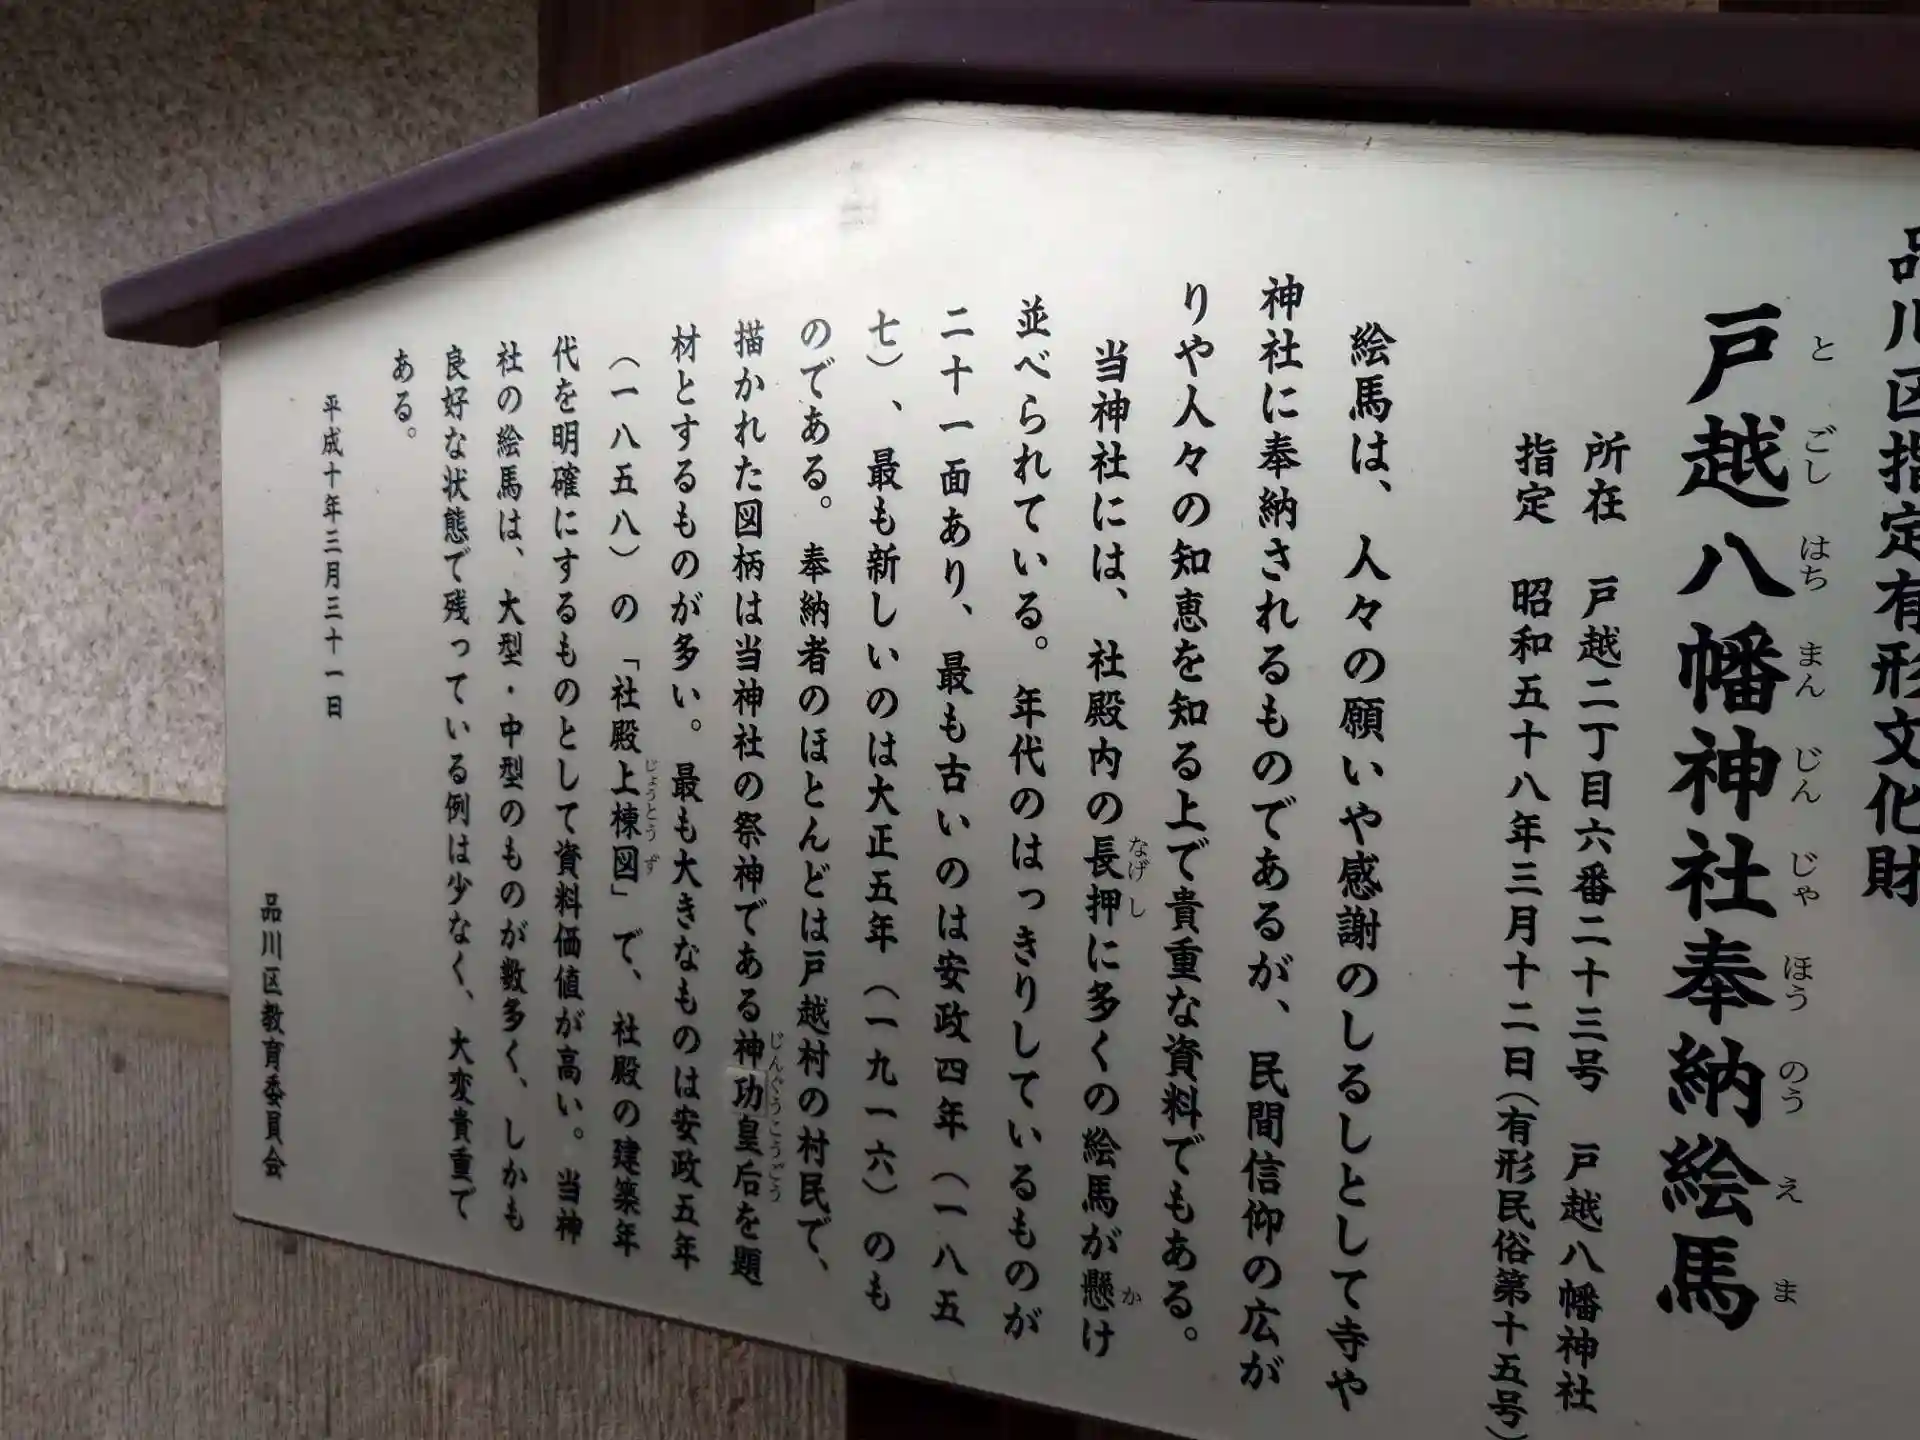 品川区指定有形文化財
戸越八幡神社奉納絵馬
とごしはちまんじんじゃほうのうえま
所在 戸越二丁目六番二十三号 戸越八幡神社
指定 昭和五十八年三月十二日(有形民俗第十五号)
絵馬は、人々の願いや感謝のしるしとして寺や
神社に奉納されるものであるが、民間信仰の広が
りや人々の知恵を知る上で貴重な資料でもある。
当神社には、社殿内の長押に多くの絵馬が懸け
なげし か
並べられている。年代のはっきりしているものが
二十一面あり、最も古いのは安政四年(一八五
七)、最も新しいのは大正五年(一九一六)のも
のである。奉納者のほとんどは戸越村の村民で、
描かれた図柄は当神社の祭神である神功皇后を題
じんぐうこうごう
材とするものが多い。最も大きなものは安政五年
(一八五八)の「社殿上棟図」で、社殿の建築年
じょうとうず
代を明確にするものとして資料価値が高い。当神
社の絵馬は、大型・中型のものが数多く、しかも
良好な状態で残っている例は少なく、大変貴重で
ある。
平成十年三月三十一日
品川区教育委員会